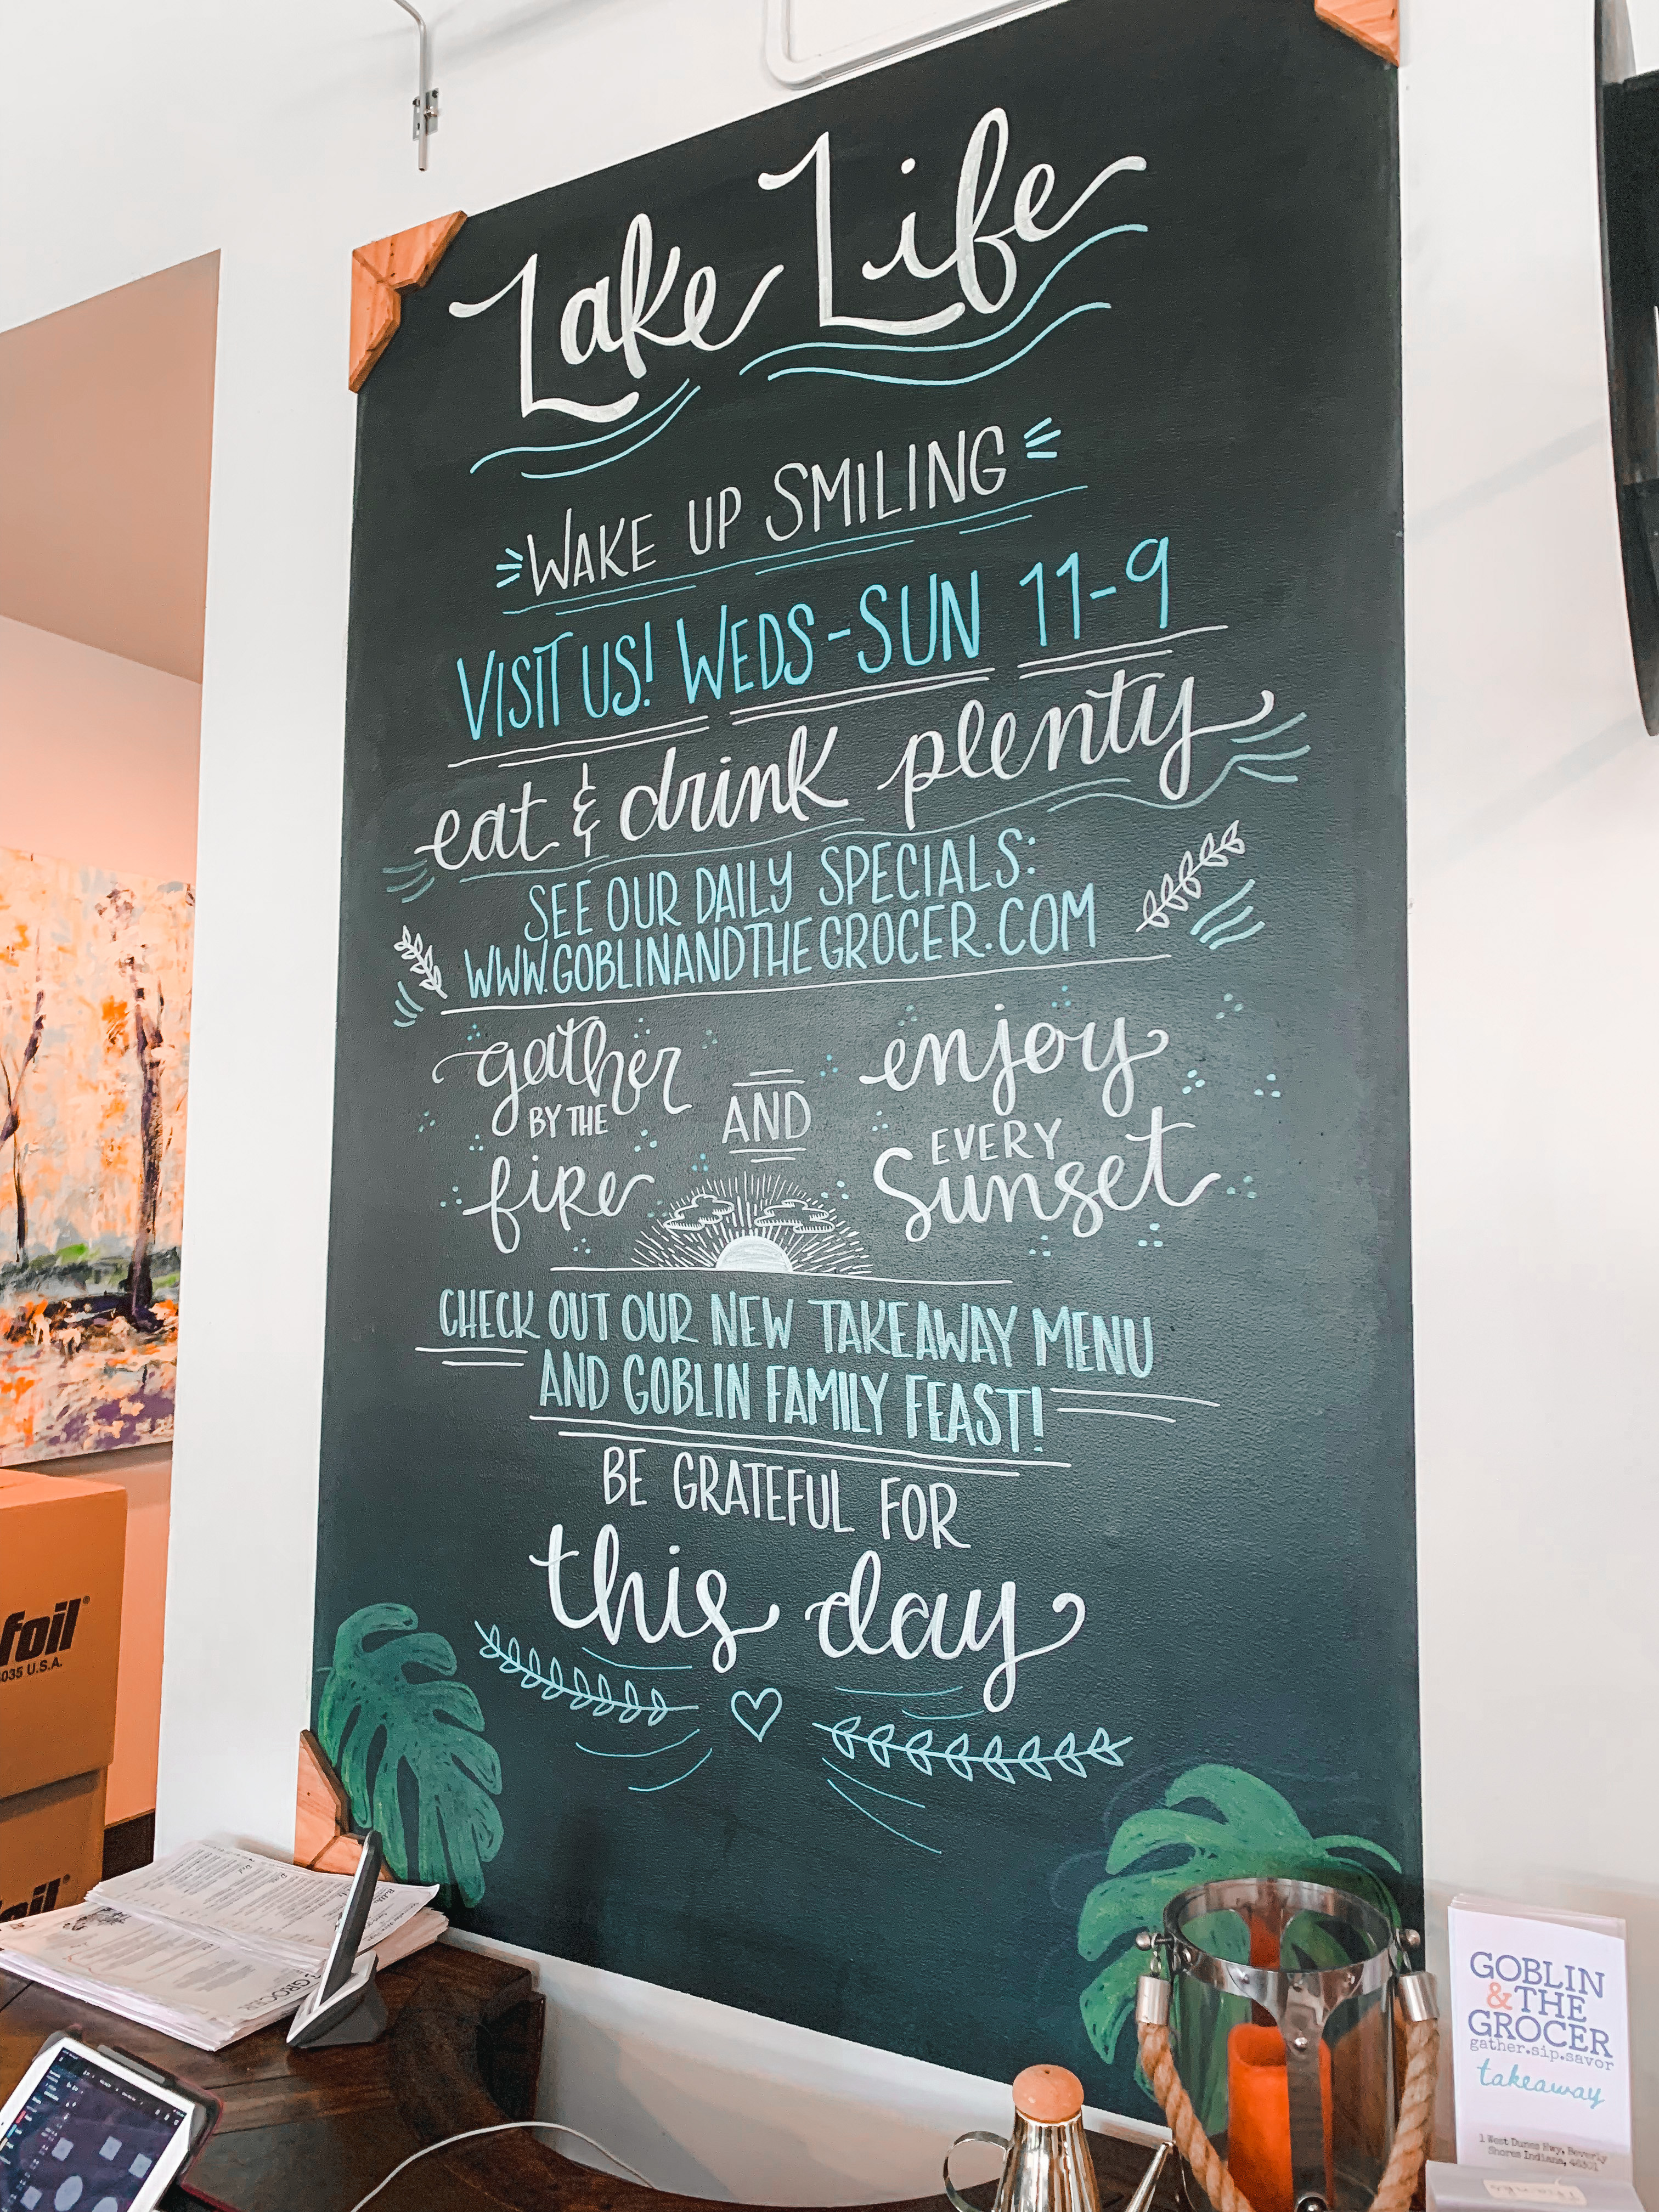 Lake Life
WAKE UP SMILING
VISIT US! WEDS-SUN 11-9
eat & drink plenty
SEE OUR DAILY SPECIALS:
WWW.GOBLINANDTHEGROCER.COM
gather
BY THE
fire
AND
enjoy
EVERY
Sunset
CHECK OUT OUR NEW TAKEAWAY MENU
AND GOBLIN FAMILY FEAST!
BE GRATEFUL FOR
this day
foil®
035 U.S.A.
GROCER
GOBLIN
& THE
GROCER
gather.sip.savor
takeaway
1 West Dunes Hwy, Beverly
Shores Indiana, 46301